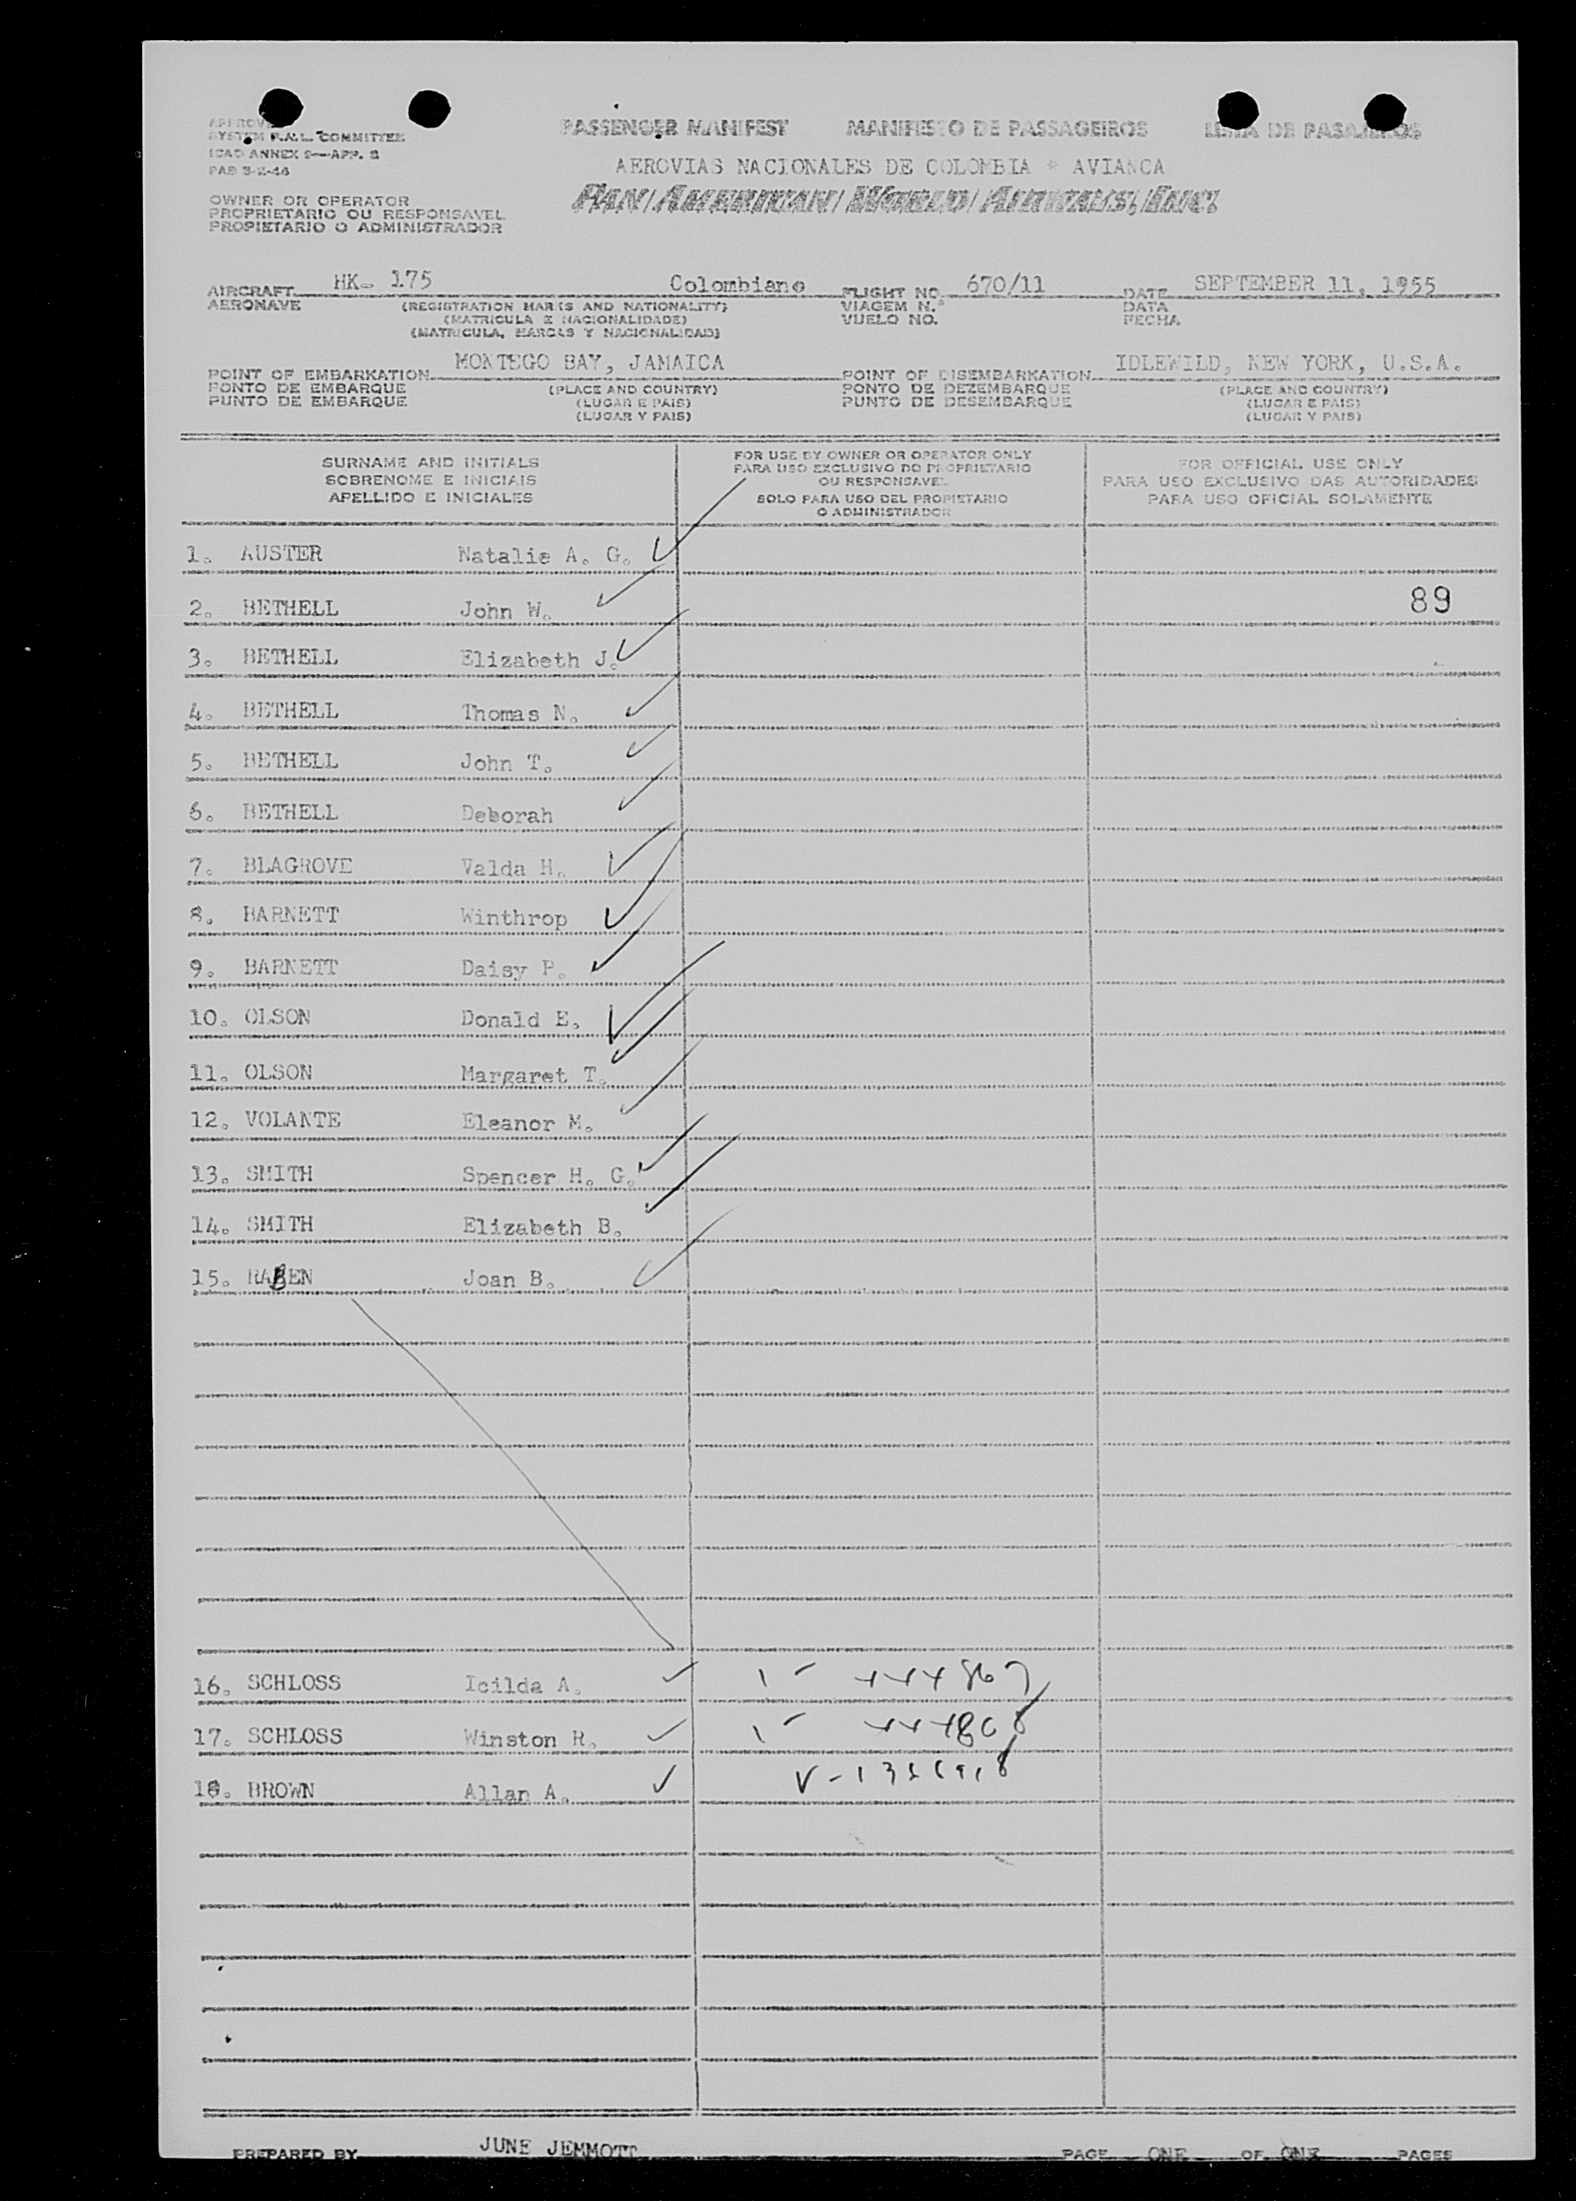 PASSENGER MANIFEST MANIFESTO DE PASSAGEIROS LISTA DE PASAJEROS
SYSTEM F.A.L. COMMITTEE
ICAO ANNEX 9—APP. 2
AEROVIAS NACIONALES DE COLOMBIA * AVIANCA
PAN AMERICAN WORLD AIRWAYS, INC.
OWNER OR OPERATOR
PROPRIETARIO OU RESPONSAVEL
PROPIETARIO O ADMINISTRADOR
AIRCRAFT HK- 175 Colombiano FLIGHT NO. 670/11 DATE SEPTEMBER 11, 1955
AERONAVE (REGISTRATION MARKS AND NATIONALITY) VIAGEM N.º DATA
(MATRICULA E NACIONALIDADE) VUELO NO. FECHA
(MATRICULA, MARCAS Y NACIONALIDAD)
POINT OF EMBARKATION MONTEGO BAY, JAMAICA POINT OF DISEMBARKATION IDLEWILD, NEW YORK, U.S.A.
PONTO DE EMBARQUE (PLACE AND COUNTRY) PONTO DE DEZEMBARQUE (PLACE AND COUNTRY)
PUNTO DE EMBARQUE (LUGAR E PAIS) PUNTO DE DESEMBARQUE (LUGAR E PAIS)
(LUGAR Y PAIS) (LUGAR Y PAIS)
SURNAME AND INITIALS
SOBRENOME E INICIAIS
APELLIDO E INICIALES
FOR USE BY OWNER OR OPERATOR ONLY
PARA USO EXCLUSIVO DO PROPRIETARIO
OU RESPONSAVEL
SOLO PARA USO DEL PROPIETARIO
O ADMINISTRADOR
FOR OFFICIAL USE ONLY
PARA USO EXCLUSIVO DAS AUTORIDADES
PARA USO OFICIAL SOLAMENTE
1. AUSTER Natalie A. G.
2. BETHELL John W. 89
3. BETHELL Elizabeth J.
4. BETHELL Thomas N.
5. BETHELL John T.
6. BETHELL Deborah
7. BLAGROVE Valda H.
8. BARNETT Winthrop
9. BARNETT Daisy P.
10. OLSON Donald E.
11. OLSON Margaret T.
12. VOLANTE Eleanor M.
13. SMITH Spencer H. G.
14. SMITH Elizabeth B.
15. RABEN Joan B.
16. SCHLOSS Icilda A.
17. SCHLOSS Winston R.
18. BROWN Allan A.
PREPARED BY JUNE JEMMOTT PAGE ONE OF ONE PAGES